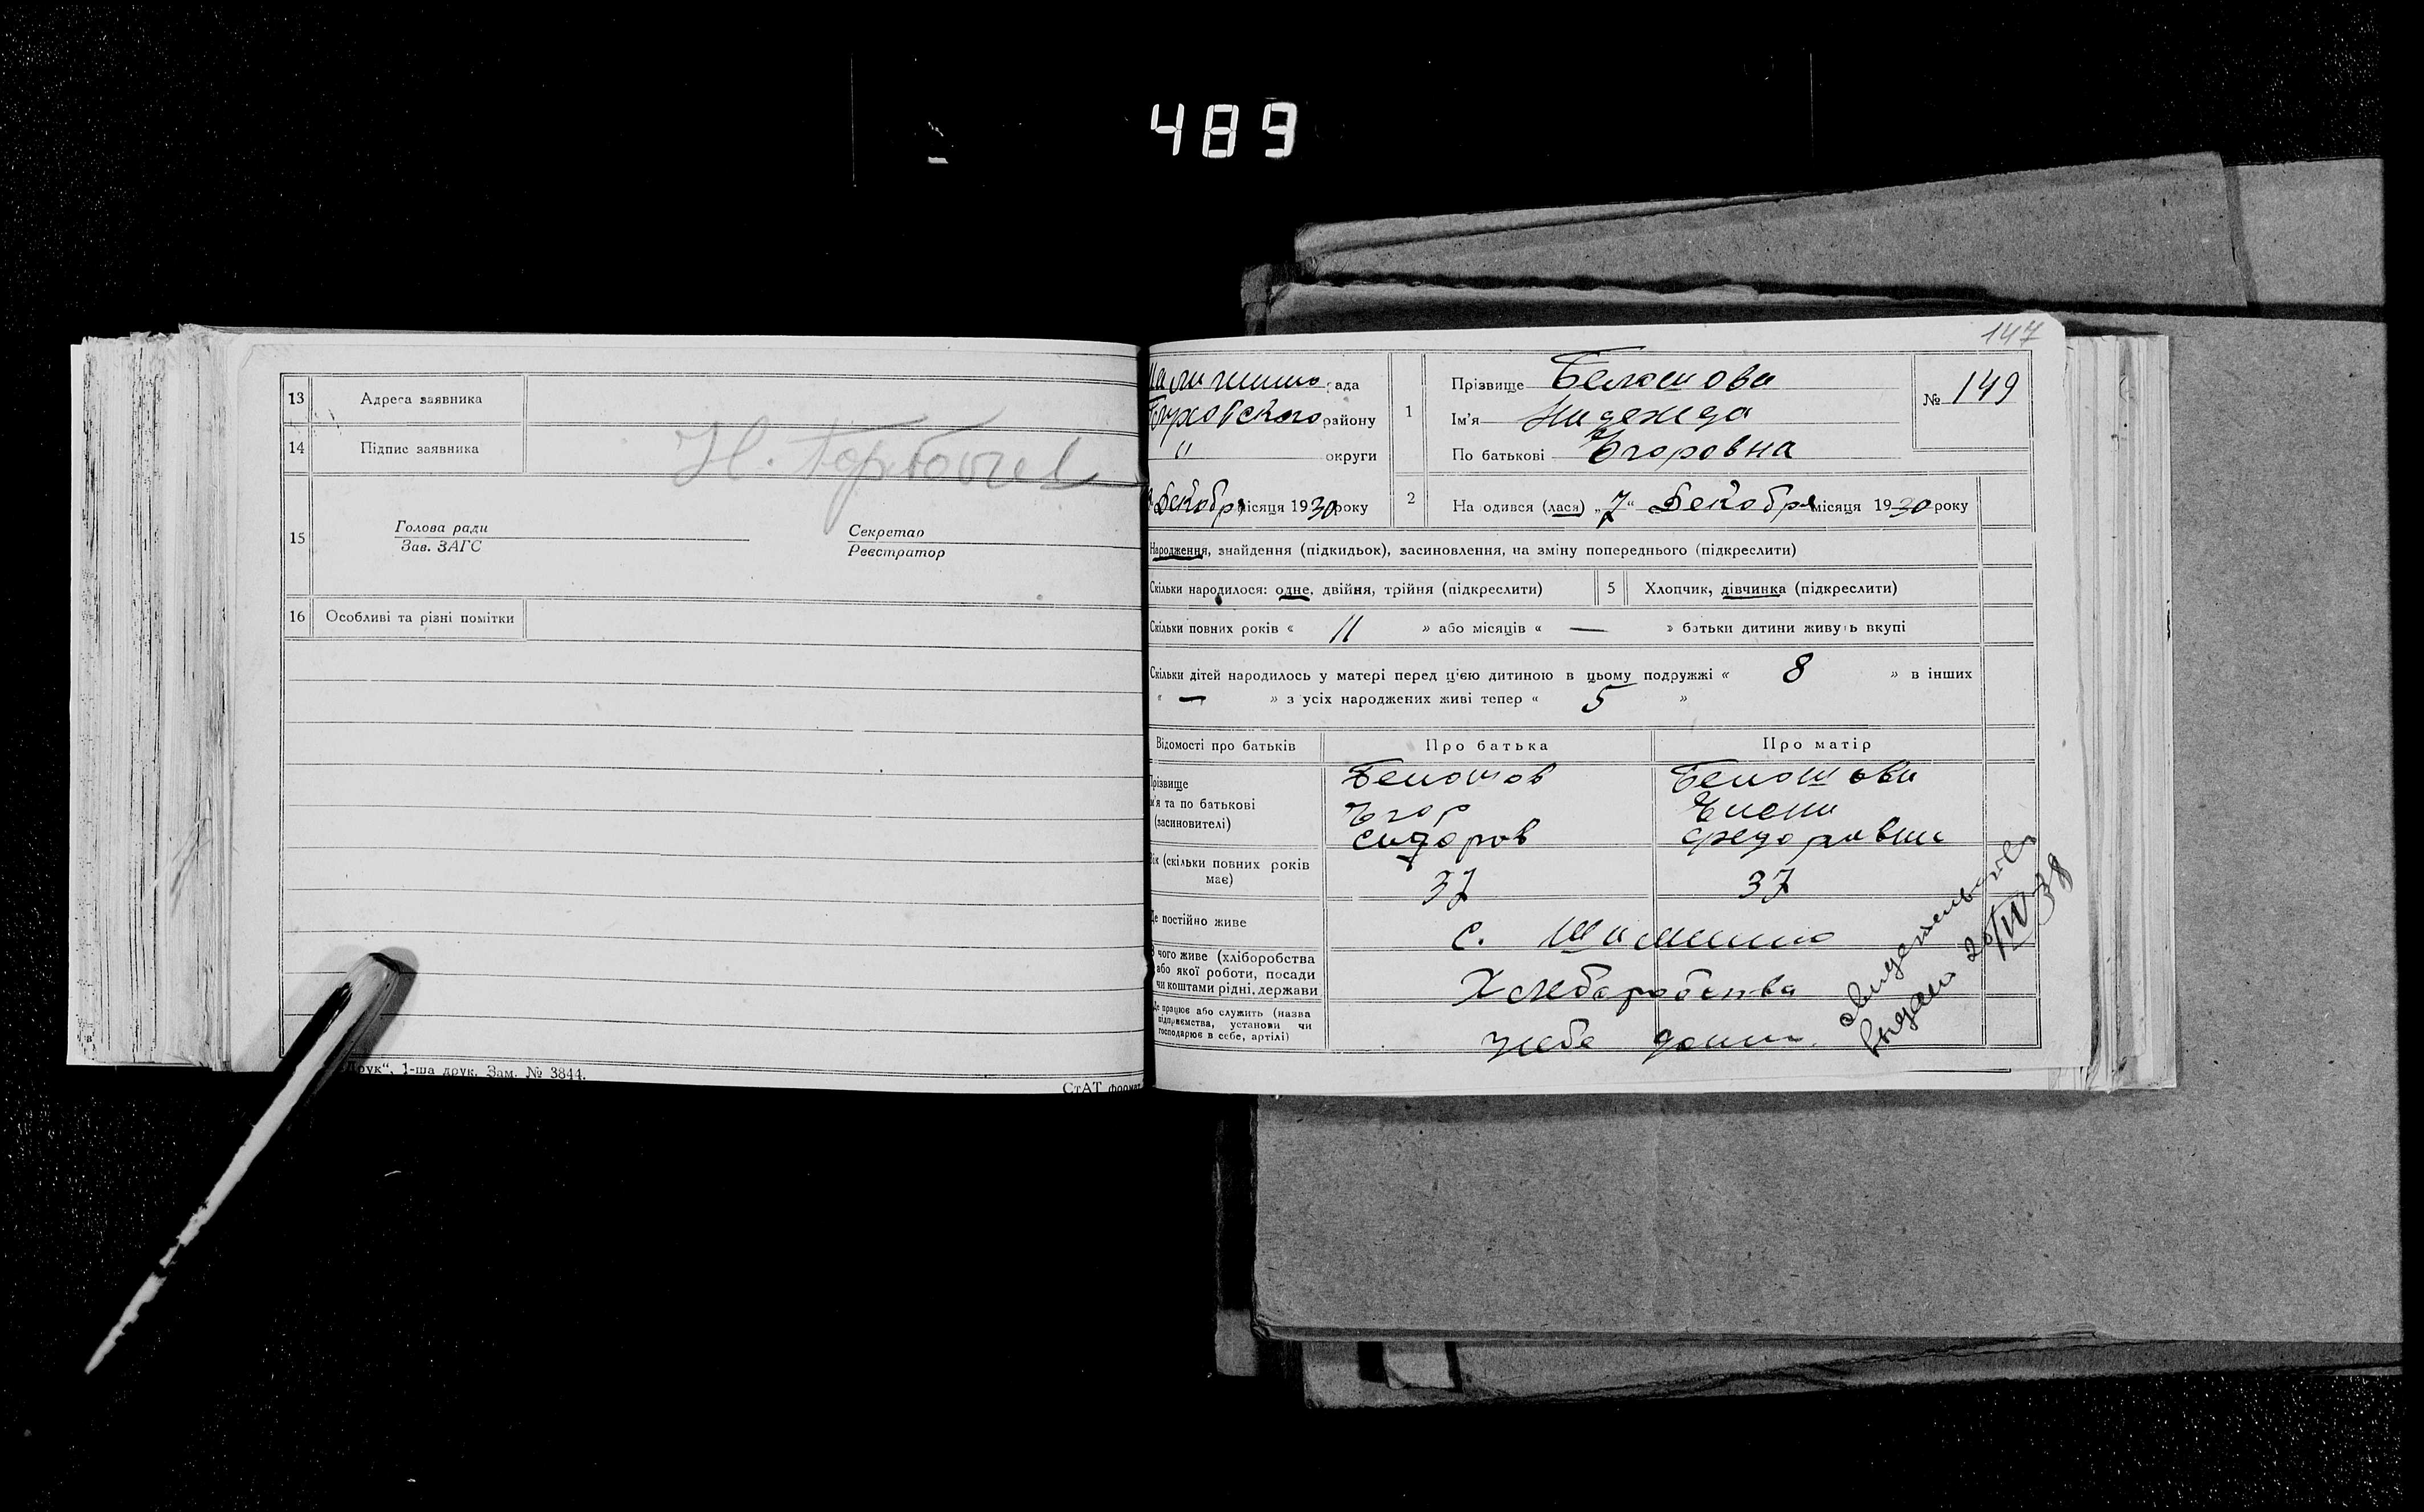 489
13 Адреса заявника
14 Підпис заявника
Н. Горбачев
15 Голова ради
Зав. ЗАГС
Секретар
Реєстратор
16 Особливі та різні помітки
Друк“, 1-ша друк. Зам. № 3844.
СтАТ формат
147
рада
района
району
округи
1
Прізвище Белашова
Ім'я Надежда
По батькові Егоровна
№ 149
Декабря місяця 1930 року
2 На одився (лася) „7“ Декабря місяця 1930 року
Народження, знайдення (підкидьок), засиновлення, на зміну попереднього (підкреслити)
Скільки народилося: одне, двійня, трійня (підкреслити)
5 Хлопчик, дівчинка (підкреслити)
Скільки повних років « 11 » або місяців « — » батьки дитини живуть вкупі
Скільки дітей народилось у матері перед цією дитиною в цьому подружжі « 8 » в інших
« — » з усіх народжених живі тепер « 5 »
Відомості про батьків Про батька Про матір
Прізвище
м'я та по батькові
(засиновителі)
Белашов
Егор
Сидоров
Белашова
Елена
Федоровна
Вік (скільки повних років
має)
37 37
Де постійно живе
с.
З чого живе (хліборобства
або якої роботи, посади
чи коштами рідні, держави
Хлебаробства
Де працює або служить (назва
підприємства, установи чи
господарює в себе, артілі)
свидетельство
выдано 20/IV 38